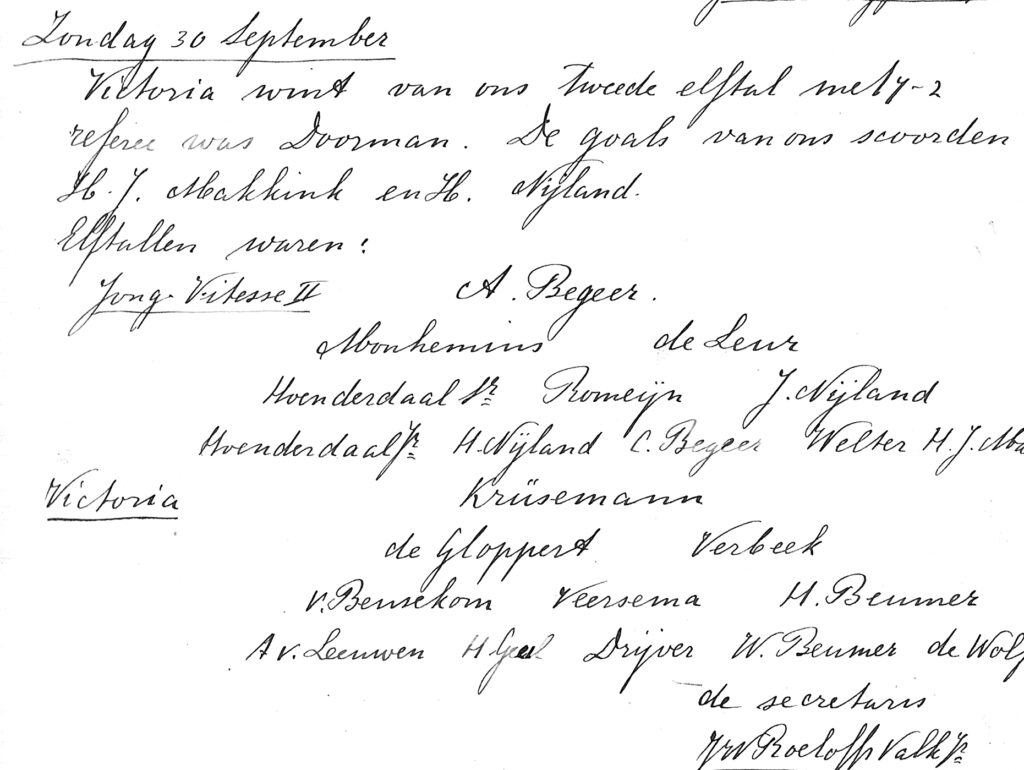 Zondag 30 September
Victoria wint van ons tweede elftal met 7-2
referee was Doorman. De goals van ons scoorden
H. J. Makkink en H. Nijland.
Elftallen waren:
Jong Vitesse II A. Begeer.
Monhemius de Leur
Hoenderdaal Sr Romeijn J. Nijland
Hoenderdaal Jr H. Nijland C. Begeer Welter H. J. Ma
Victoria Krüsemann
de Gloppert Verbeek
v. Beusekom Veersema H. Beumer
A v. Leeuwen H Drijver W. Beumer de Wolf
de secretaris
Roeloffs Valk Jr